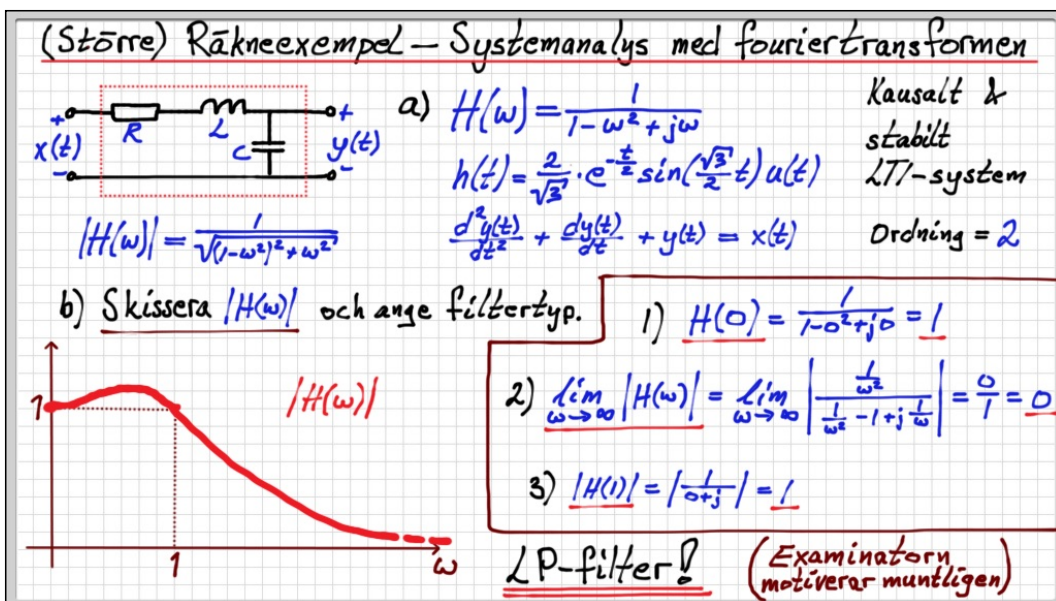 (Större) Räkneexempel – Systemanalys med fouriertransformen
+ R L C +
x(t) y(t)
- -
a) H(ω) = 1/(1-ω²+jω)
h(t) = 2/√3 · e^(-t/2) sin(√3/2 t) u(t)
d²y(t)/dt² + dy(t)/dt + y(t) = x(t)
Kausalt &
stabilt
LTI-system
Ordning = 2
|H(ω)| = 1/√((1-ω²)²+ω²)
b) Skissera |H(ω)| och ange filtertyp.
1
|H(ω)|
1
ω
1) H(0) = 1/(1-0²+j0) = 1
2) lim ω→∞ |H(ω)| = lim ω→∞ |(1/ω²)/(1/ω² -1+j 1/ω)| = 0/1 = 0
3) |H(1)| = |1/(0+j)| = 1
LP-filter!
(Examinatorn
motiverar muntligen)